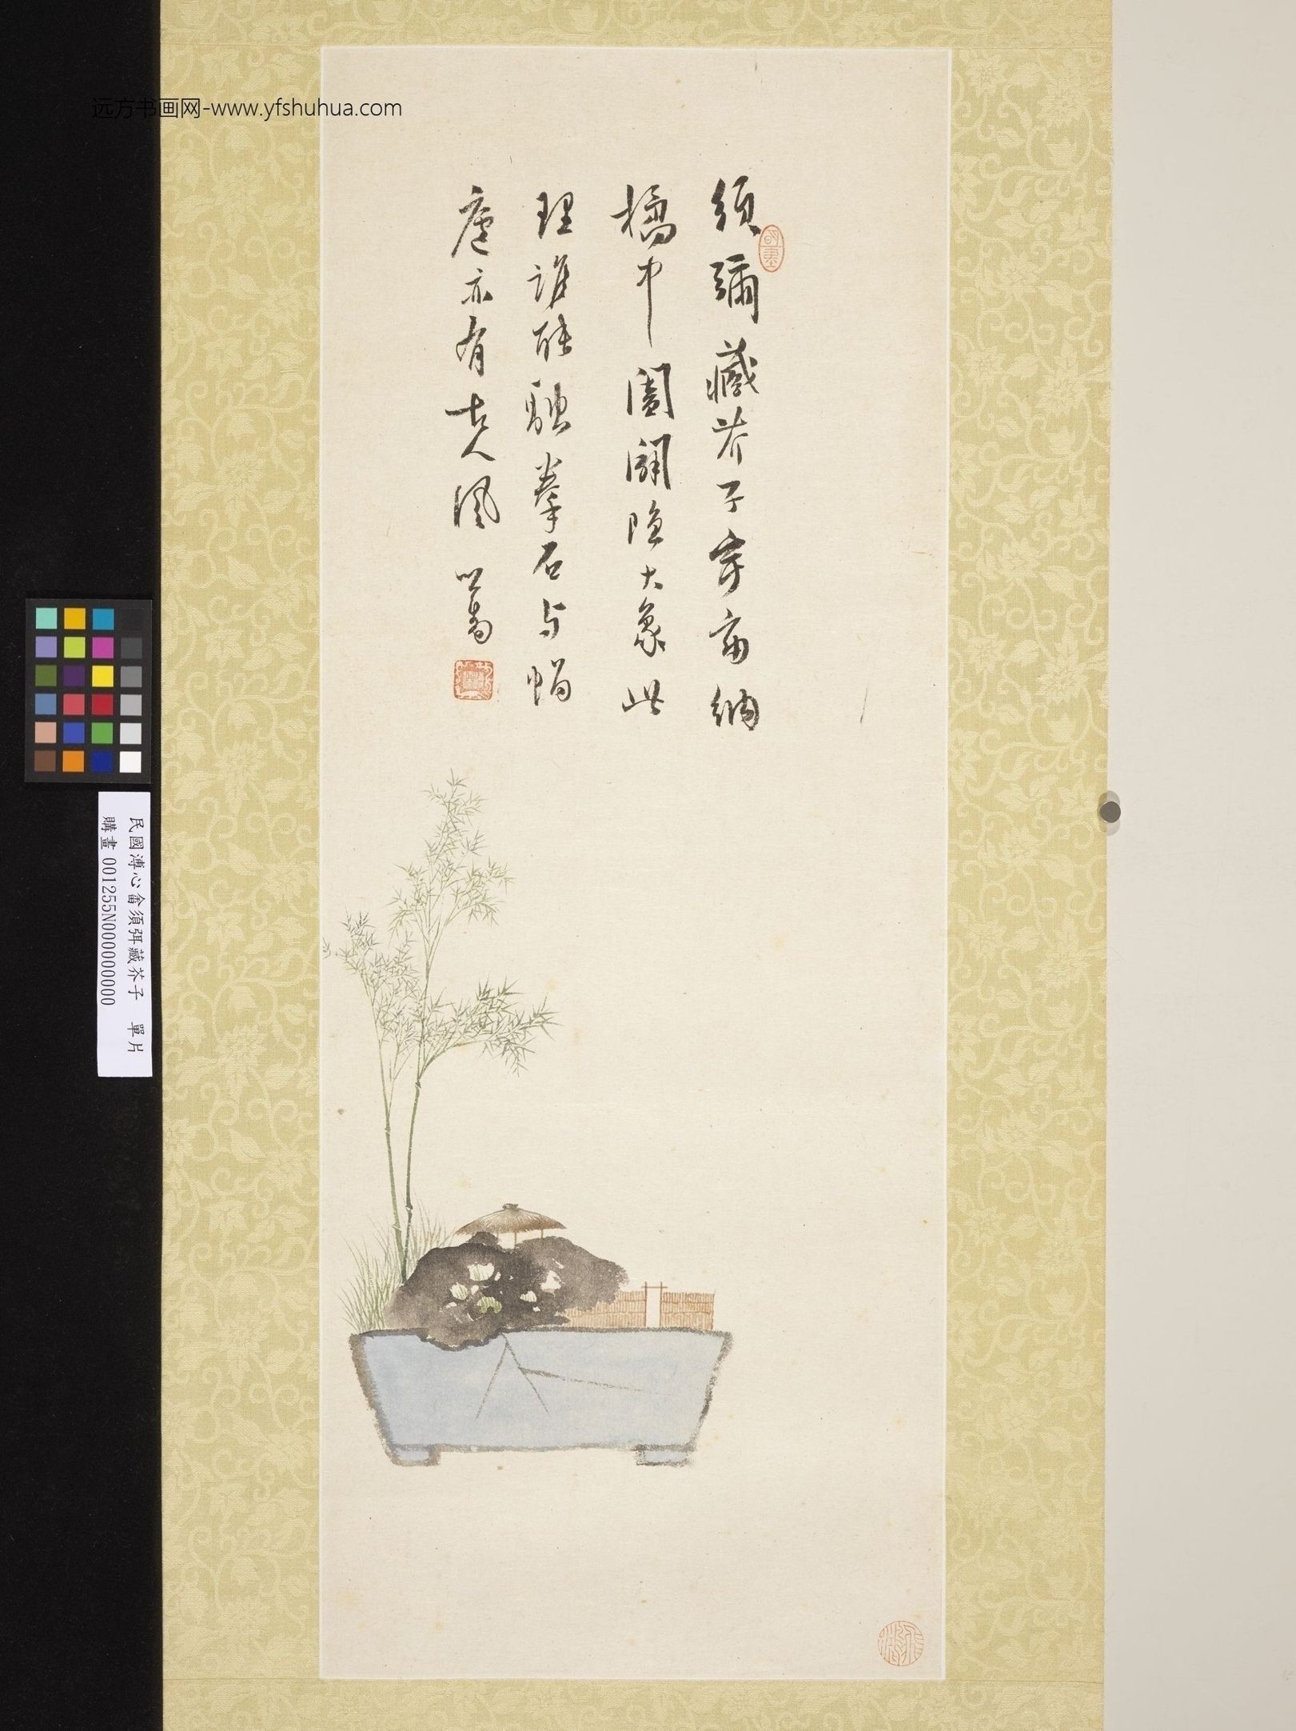 远方书画网-www.yfshuhua.com
須彌藏芥子寧商納
橘中闔闢隐大象此
理誰能融拳石与蝸
廬亦有古人風 心畬
民國溥心畬須彌藏芥子 單片
購畫 001255N000000000